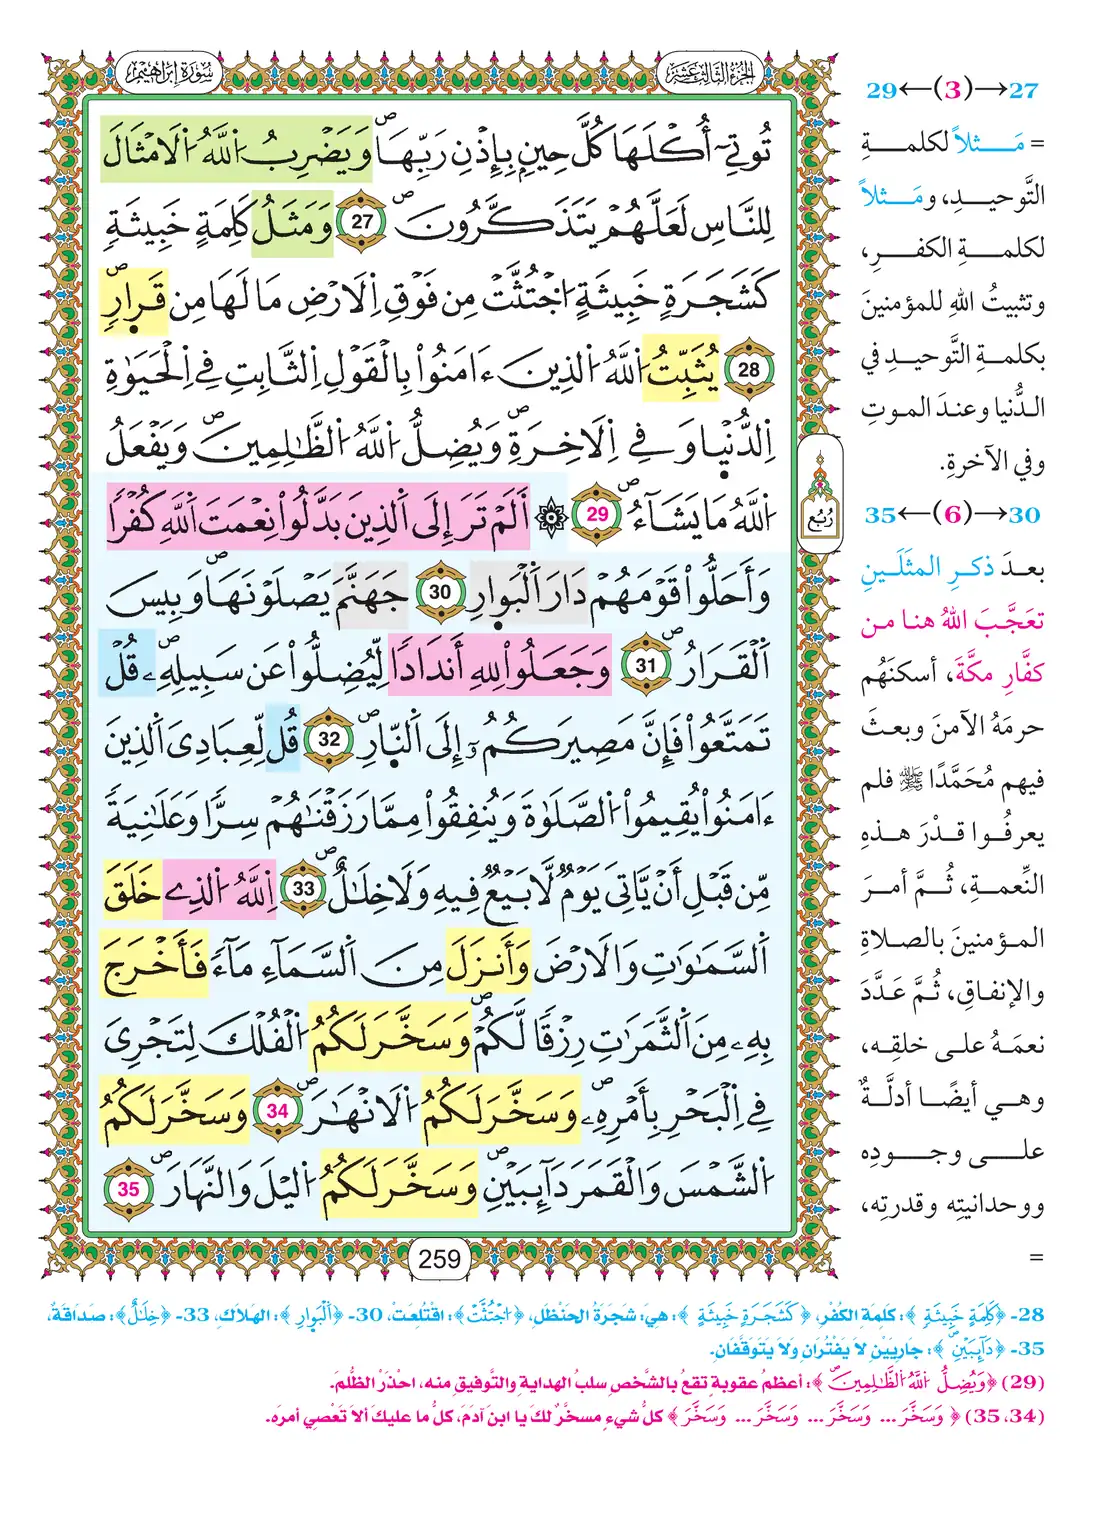 سُورَةُ إِبْرَاهِيمَ
الجُزْءُ الثَّالِثَ عَشَرَ
تُوتِےٓ أُكْلَهَا كُلَّ حِينِۢ بِإِذْنِ رَبِّهَاۖ وَيَضْرِبُ اُ۬للَّهُ اُ۬لَامْثَالَ
لِلنَّاسِ لَعَلَّهُمْ يَتَذَكَّرُونَۖ 27 وَمَثَلُ كَلِمَةٍ خَبِيثَةٖ
كَشَجَرَةٍ خَبِيثَةٍ اِ۟جْتُثَّتْ مِن فَوْقِ اِ۬لَارْضِ مَا لَهَا مِن قَر۪ارٖۖ
28 يُثَبِّتُ اُ۬للَّهُ اُ۬لذِينَ ءَامَنُواْ بِالْقَوْلِ اِ۬لثَّابِتِ فِے اِ۬لْحَيَوٰةِ
اِ۬لدُّنْي۪ا وَفِے اِ۬لَاخِرَةِۖ وَيُضِلُّ اُ۬للَّهُ اُ۬لظَّٰلِمِينَۖ وَيَفْعَلُ
اُ۬للَّهُ مَا يَشَآءُۖ 29 ۞ أَلَمْ تَرَ إِلَى اَ۬لذِينَ بَدَّلُواْ نِعْمَتَ اَ۬للَّهِ كُفْراٗ
وَأَحَلُّواْ قَوْمَهُمْ دَارَ اَ۬لْبَو۪ارِ 30 جَهَنَّمَ يَصْلَوْنَهَاۖ وَبِيسَ
اَ۬لْقَرَارُۖ 31 وَجَعَلُواْ لِلهِ أَندَاداٗ لِّيُضِلُّواْ عَن سَبِيلِهِۦۖ قُلْ
تَمَتَّعُواْ فَإِنَّ مَصِيرَكُمُۥٓ إِلَى اَ۬لنّ۪ارِۖ 32 قُل لِّعِبَادِيَ اَ۬لذِينَ
ءَامَنُواْ يُقِيمُواْ اُ۬لصَّلَوٰةَ وَيُنفِقُواْ مِمَّا رَزَقْنَٰهُمْ سِرّاٗ وَعَلَٰنِيَةٗ
مِّن قَبْلِ أَنْ يَّاتِيَ يَوْمٞ لَّا بَيْعٞ فِيهِ وَلَا خِلَٰلٌۖ 33 اِ۬للَّهُ اُ۬لذِے خَلَقَ
اَ۬لسَّمَٰوَٰتِ وَالَارْضَ وَأَنزَلَ مِنَ اَ۬لسَّمَآءِ مَآءٗ فَأَخْرَجَ
بِهِۦ مِنَ اَ۬لثَّمَرَٰتِ رِزْقاٗ لَّكُمْۖ وَسَخَّرَ لَكُمُ اُ۬لْفُلْكَ لِتَجْرِيَ
فِے اِ۬لْبَحْرِ بِأَمْرِهِۦۖ وَسَخَّرَ لَكُمُ اُ۬لَانْهَٰرَۖ 34 وَسَخَّرَ لَكُمُ
اُ۬لشَّمْسَ وَالْقَمَرَ دَآئِبَيْنِۖ وَسَخَّرَ لَكُمُ اُ۬ليْلَ وَالنَّهَارَۖ 35
رُبُع
259
27→(3)←29
= مَثلاً لكلمةِ
التَّوحيدِ، ومَثلاً
لكلمةِ الكفرِ،
وتثبيتُ اللهِ للمؤمنينَ
بكلمةِ التَّوحيدِ في
الدُّنيا وعندَ الموتِ
وفي الآخرةِ.
30→(6)←35
بعدَ ذكرِ المثَلَينِ
تعَجَّبَ اللهُ هنا من
كفَّارِ مكَّةَ، أسكنَهُم
حرمَهُ الآمنَ وبعثَ
فيهم مُحَمَّدًا ﷺ فلم
يعرفُوا قدْرَ هذهِ
النِّعمةِ، ثُمَّ أمرَ
المؤمنينَ بالصلاةِ
والإنفاقِ، ثُمَّ عَدَّدَ
نعمَهُ على خلقِه،
وهي أيضًا أدلَّةٌ
على وجودِه
ووحدانيتِه وقدرتِه،
=
28- ﴿كَلِمَةٍ خَبِيثَةٖ﴾: كَلِمَةِ الكُفْرِ، ﴿كَشَجَرَةٍ خَبِيثَةٍ﴾: هِيَ: شَجَرَةُ الحَنْظَلِ، ﴿اُ۟جْتُثَّتْ﴾: اقْتُلِعَتْ، 30- ﴿اَ۬لْبَو۪ارِ﴾: الهَلاكِ، 33- ﴿خِلَٰلٌ﴾: صَدَاقَةٌ،
35- ﴿دَآئِبَيْنِۖ﴾: جَارِيَيْنِ لاَ يَفْتُرَانِ وَلاَ يَتَوَقَّفَانِ.
(29) ﴿وَيُضِلُّ اُ۬للَّهُ اُ۬لظَّٰلِمِينَۖ﴾: أعظمُ عقوبةٍ تقعُ بالشَّخصِ سلبُ الهدايةِ والتَّوفيقِ منه، احْذَرْ الظُّلمَ.
(34، 35) ﴿وَسَخَّرَ ... وَسَخَّرَ ... وَسَخَّرَ ... وَسَخَّرَ﴾ كلُّ شيءٍ مسخَّرٌ لكَ يا ابنَ آدَمَ، كلُّ ما عليكَ ألاَ تَعْصِي أمرَه.